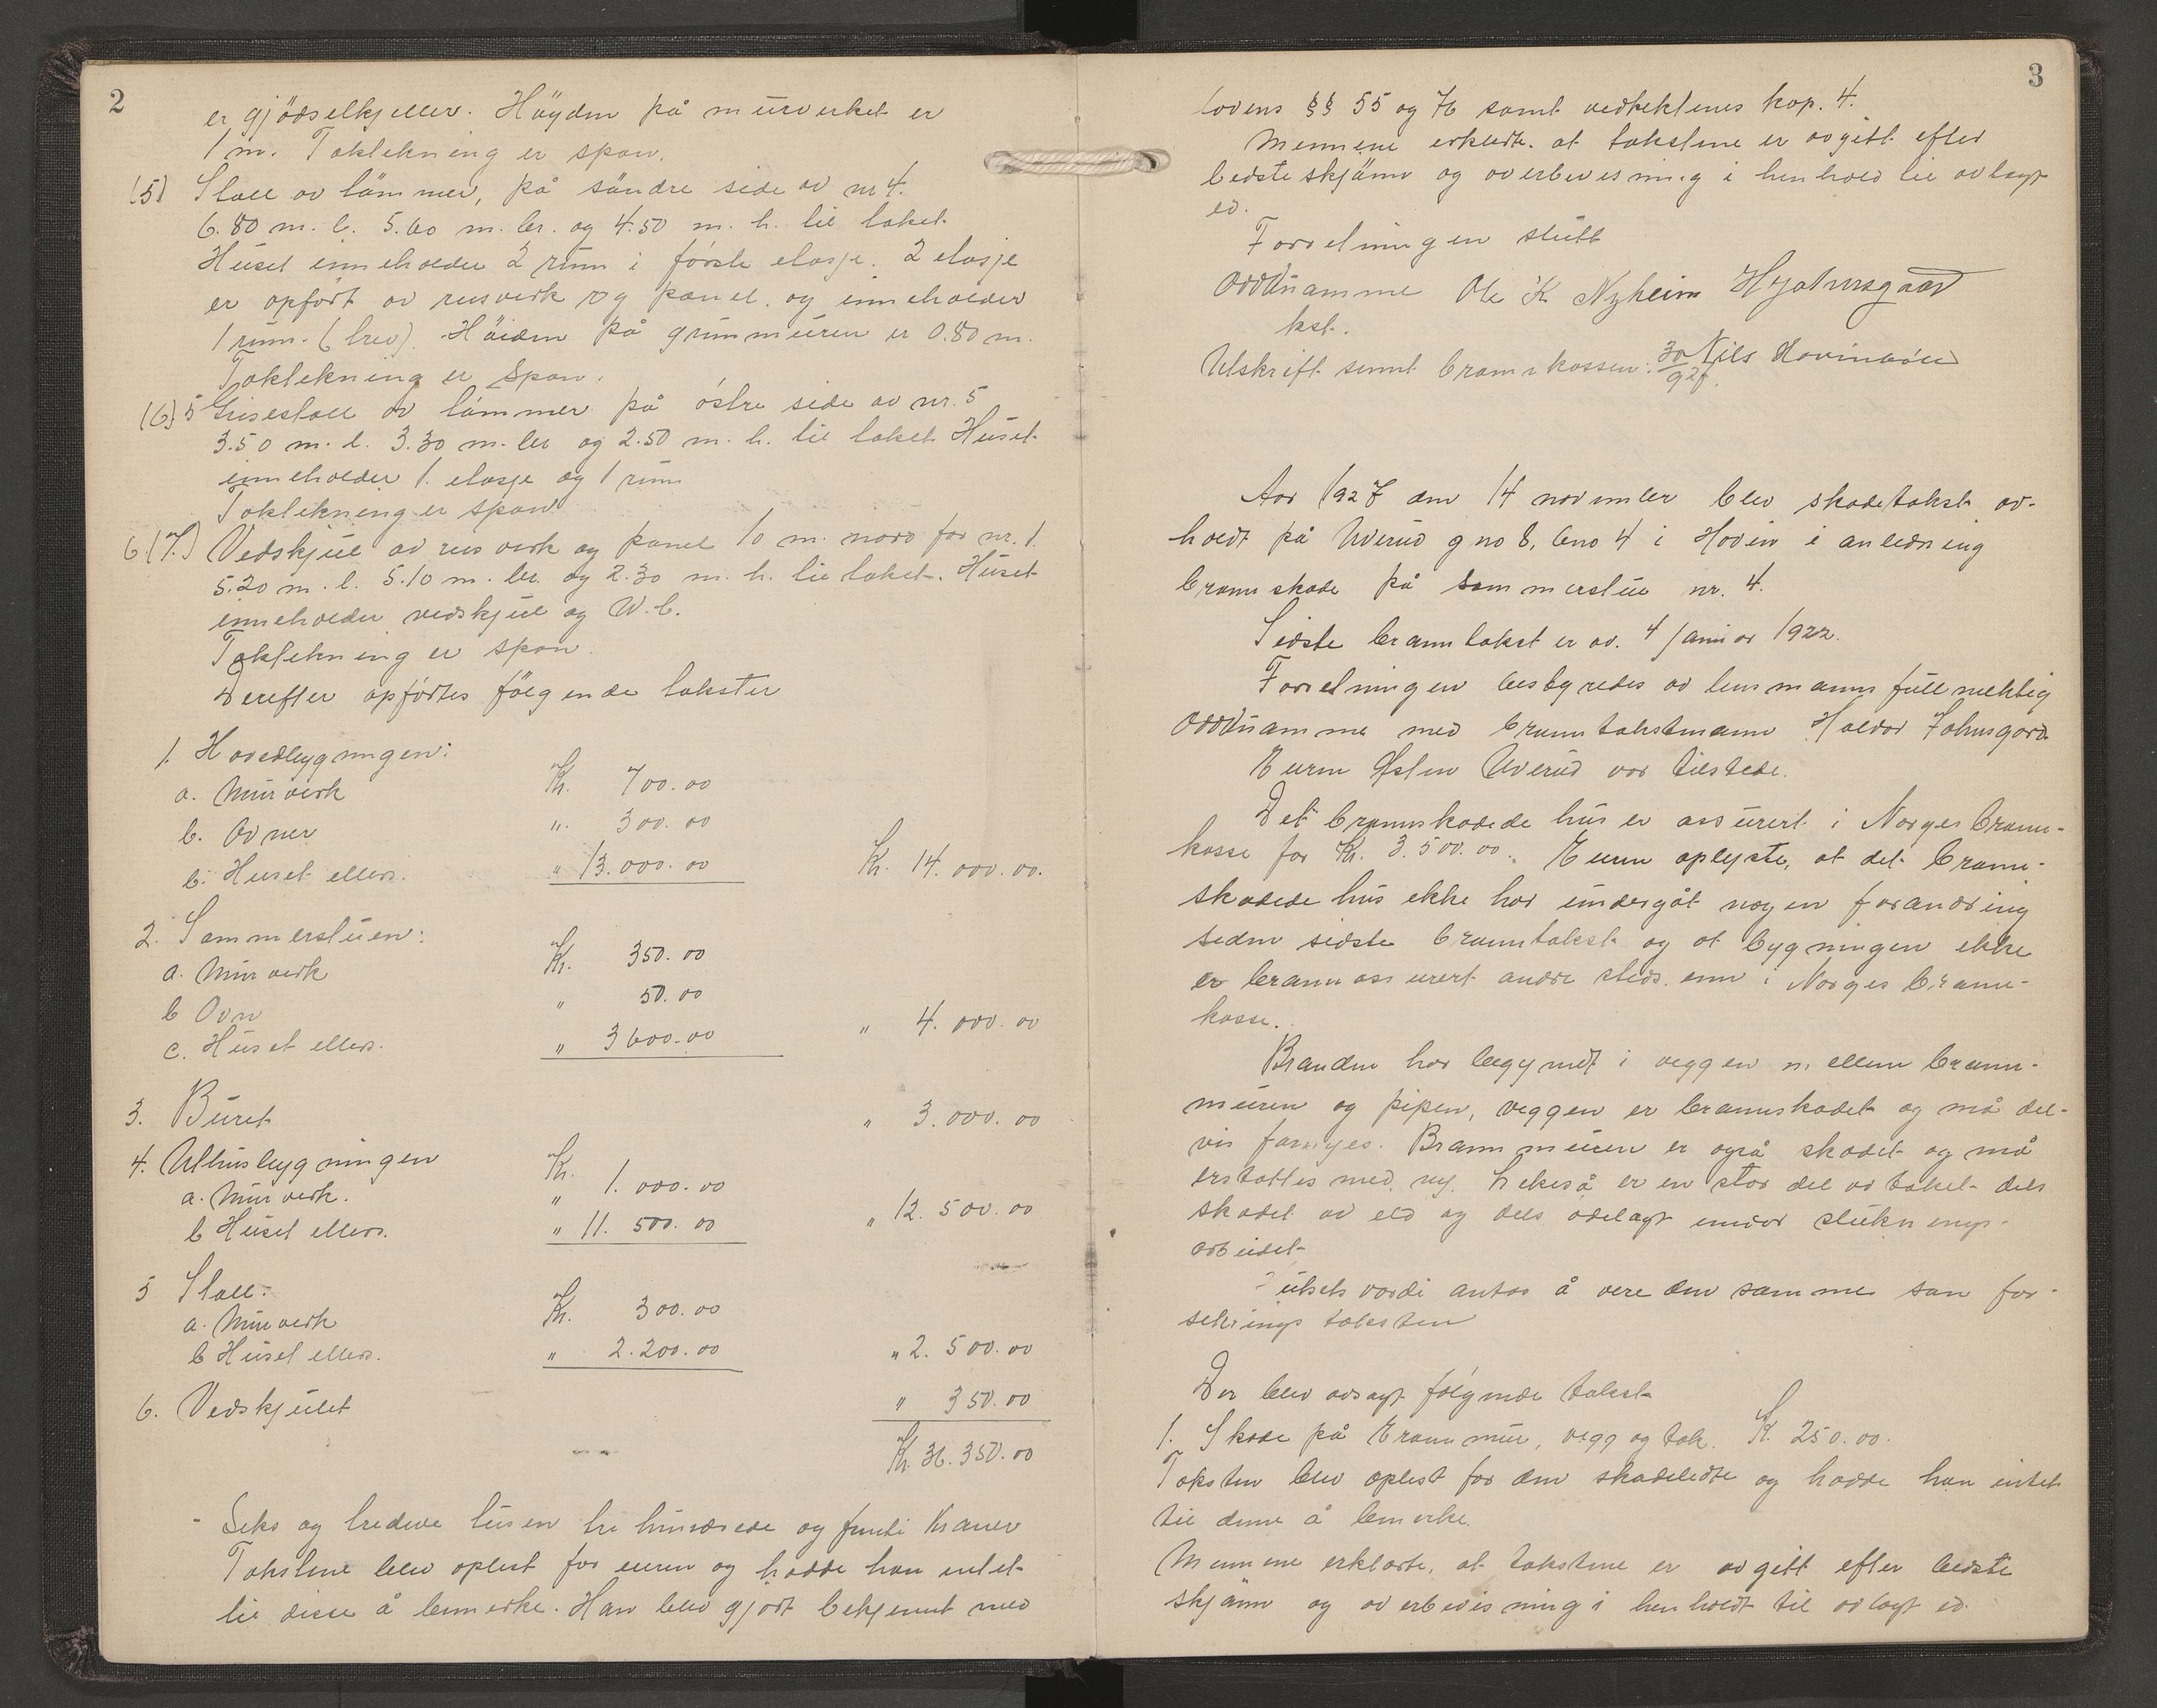 2
er gjödselkjeller. Höyden på murverket er
1 m. Taktekning er spon.
(5) Stall av tömmer, på söndre side av nr 4.
6.80 m. l. 5.60 m. br. og 4.50 m. h. til taket.
Huset inneholder 2 rum i förste etasje. 2 etasje
er opfört av reisverk og panel og inneholder
1 rum. (trev). Höiden på grunnmuren er 0.80 m.
Taktekning er spon.
(6) 5 Grisestall av tömmer på östre side av nr. 5
3.50 m. l. 3.30 m. br og 2.50 m. h. til taket. Huset
inneholder 1. etasje og 1 rum
Taktekning er spon
6 (7.) Vedskjul av reisverk og panel 10 m. nord for nr. 1.
5.20 m. l. 5.10 m. br. og 2.30 m. h. til taket. Huset
inneholder vedskjul og W.c.
Taktekning er spon.
Derefter opförtes fölgende takster
1. Hovedbygningen:
a. Murverk Kr. 700.00
b. Ovner " 300.00
c. Huset ellers. " 13.000.00 Kr. 14.000.00.
2. Sommerstuen:
a. Murverk Kr. 350.00
b Ovn " 50.00
c. Huset ellers. " 3600.00 " 4.000.00
3. Buret " 3.000.00
4. Uthusbygningen Kr.
a. Murverk. " 1.000.00
b Huset ellers. " 11.500.00 " 12.500.00
5 Stall:
a. Murverk Kr. 300.00
b Huset ellers. " 2.200.00 " 2.500.00
6. Vedskjulet " 350.00
Kr. 36.350.00
Seks og tredeve tusen tre hundrede og femti kroner
Takstene blev oplest for eieren og hadde han intet
til disse å bemerke. Han blev gjort bekjennt med
3
lovens §§ 55 og 76 samt vedtektenes kap. 4.
Mennene erklerte. at takstene er avgitt efter
bedste skjönn og overbevisning i henhold til avlagt
ed.
Forretningen slutt
Oddvin Ole K Nyheim H Johnsgaard
kst.
Utskrift sennt brannkassen: 30/9 27. Nils Hovinbøle
Aar 1927 den 14 november blev skadetakst av-
holdt på Uverud gno 8, bno 4 i Hovin i anledning
brannskade på sommerstue nr. 4.
Sidste branntakst er av. 4 januar 1922.
Forretningen bestyredes av lensmannsfullmektig
Oddvin med branntakstmann Halvor Johnsgard
Eieren Østen Uverud var tilstede.
Det brannskadede hus er assurert i Norges brann-
kasse for Kr. 3.500.00. Eieren oplyste, at det brann-
skadede hus ikke har undergåt nogen forandring
siden sidste branntakst og at bygningen ikke
er brannassurert andre steds enn i Norges brann-
kasse.
Branden har begyndt i veggen mellem brann-
muren og pipen, veggen er brannskadet og må del-
vis fornyes. Brannmuren er også skadet og må
erstattes med ny. Likeså er en stor del av taket dels
skadet av eld og dels ödelagt under sluknings-
arbeidet
Husets verdi antas å vere den samme som for-
sikrings taksten
Der blev avsagt fölgende takst
1. Skade på brannmur, vegg og tak. Kr. 250.00.
Taksten blev oplest for den skadelidte og hadde han intet
til denne å bemerke.
Mennene erklærte, at takstene er avgitt efter bedste
skjönn og overbevisning i henhold til avlagt ed.